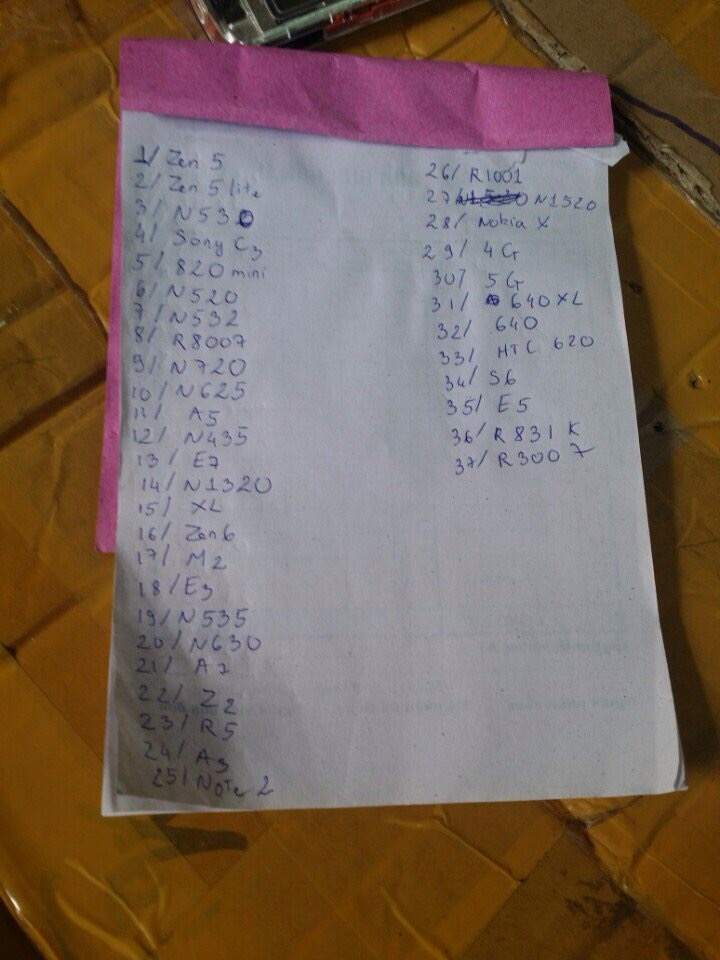 1/ Zen 5
2/ Zen 5 lite
3/ N530
4/ Sony C3
5/ 820 mini
6/ N520
7/ N532
8/ R8007
9/ N720
10/ N625
11/ A5
12/ N435
13/ E7
14/ N1320
15/ XL
16/ Zen6
17/ M2
18/ E3
19/ N535
20/ N630
21/ A7
22/ Z2
23/ R5
24/ A3
25/ Note 2
26/ R1001
27/ N1520
28/ Nokia X
29/ 4G
30/ 5G
31/ 640 XL
32/ 640
33/ HTC 620
34/ S6
35/ E5
36/ R831 K
37/ R3007